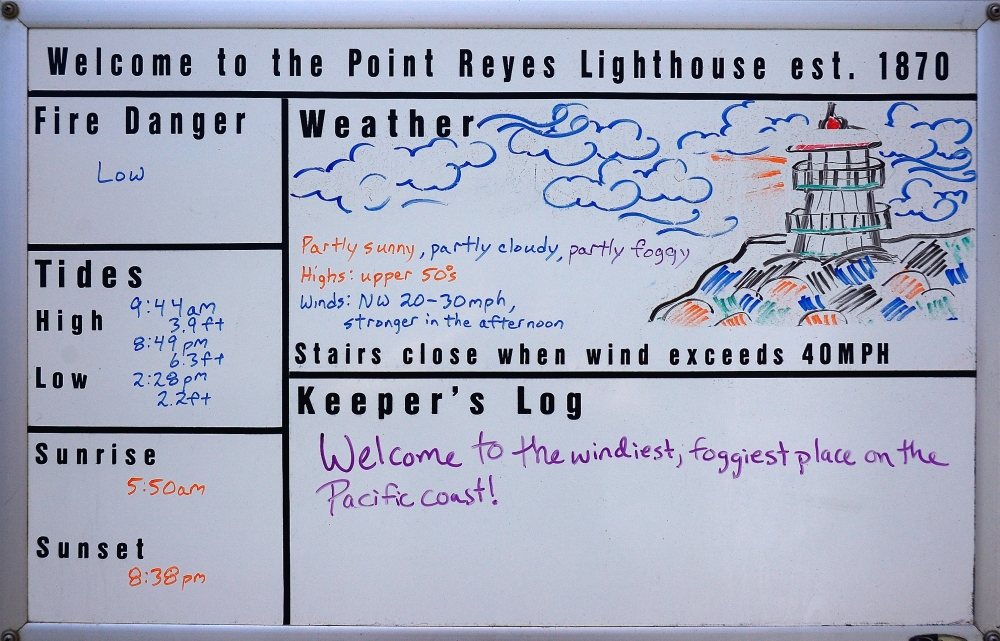 Welcome to the Point Reyes Lighthouse est. 1870
Fire Danger
Low
Tides
High 9:44am
3.9ft
8:49pm
6.3ft
Low 2:28pm
2.2ft
Sunrise
5:50am
Sunset
8:38pm
Weather
Partly sunny, partly cloudy, partly foggy
Highs: upper 50°s
Winds: NW 20-30mph,
stronger in the afternoon
Stairs close when wind exceeds 40MPH
Keeper's Log
Welcome to the windiest, foggiest place on the
Pacific coast!